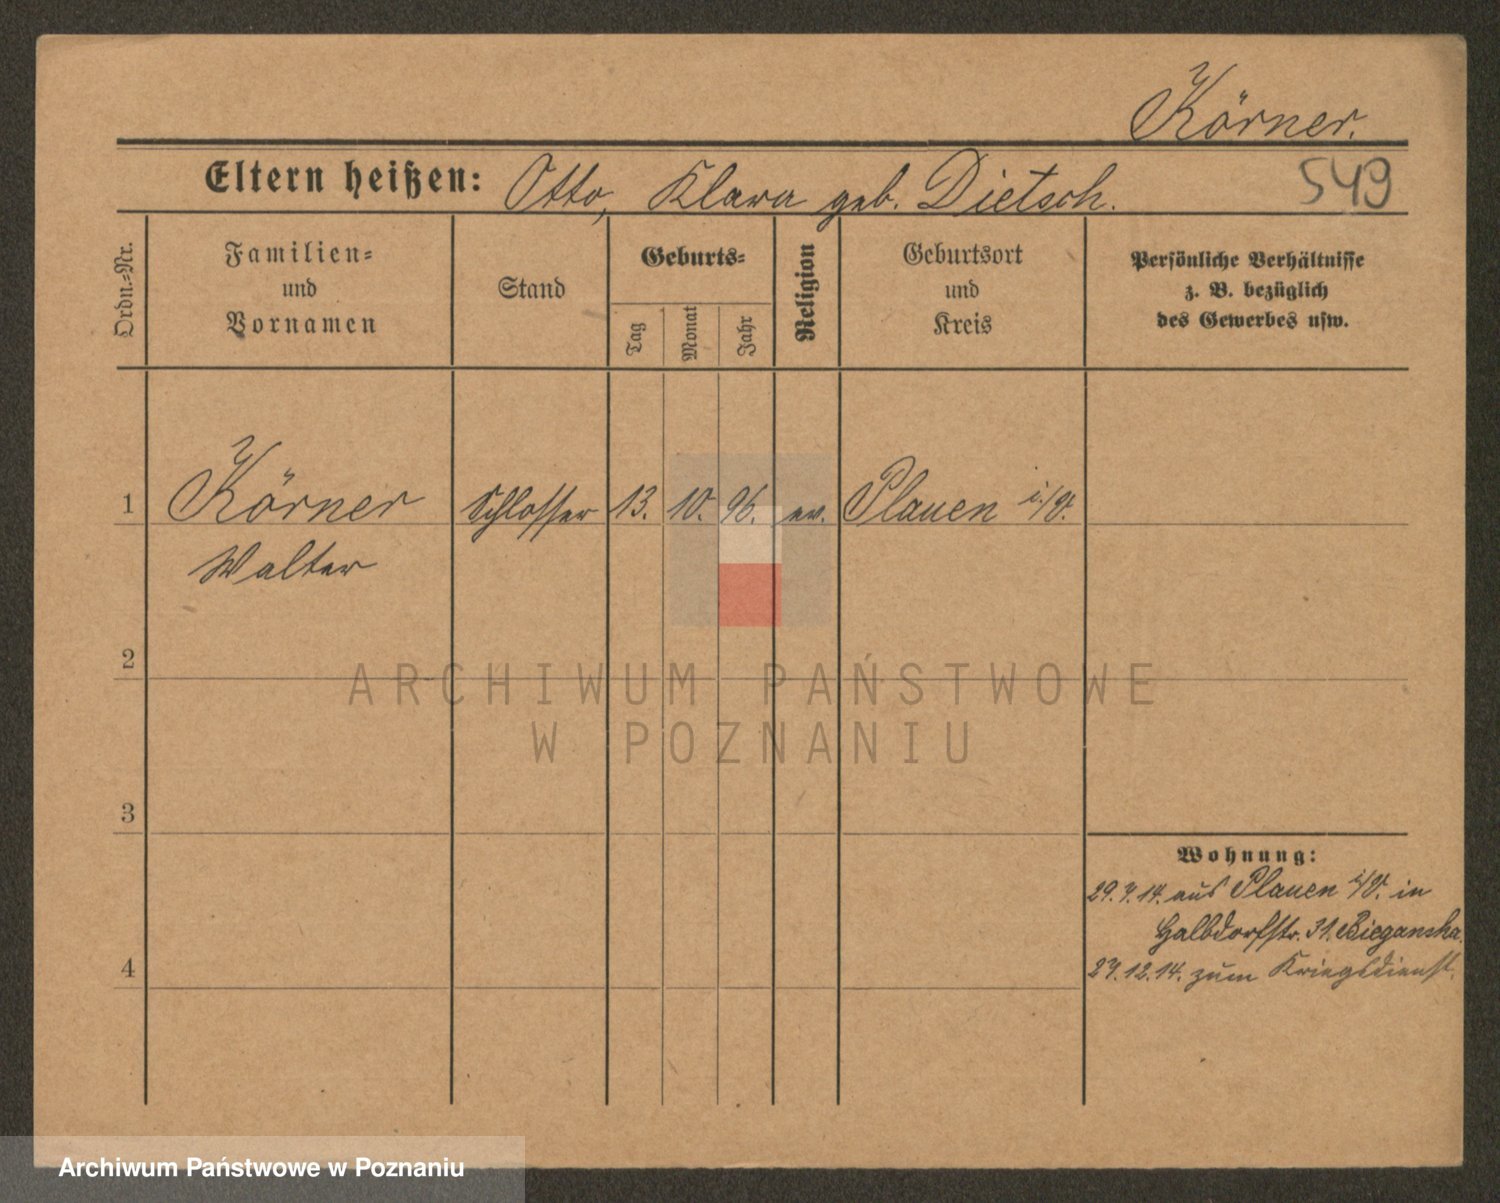 Körner.
Eltern heißen: Otto, Klara geb. Dietsch.
549
Ordn.-Nr.
Familien-
und
Vornamen
Stand
Geburts-
Tag
Monat
Jahr
Religion
Geburtsort
und
Kreis
Persönliche Verhältnisse
z. B. bezüglich
des Gewerbes usw.
1 Körner Schlosser 13. 10. 96. ev. Plauen i./V.
Walter
2
ARCHIWUM PAŃSTWOWE
W POZNANIU
3
Wohnung:
29.4.14. aus Plauen i/V. in
Halbdorfstr. 31. Bieganska
4
27.12.14. zum Kriegsdienst.
Archiwum Państwowe w Poznaniu